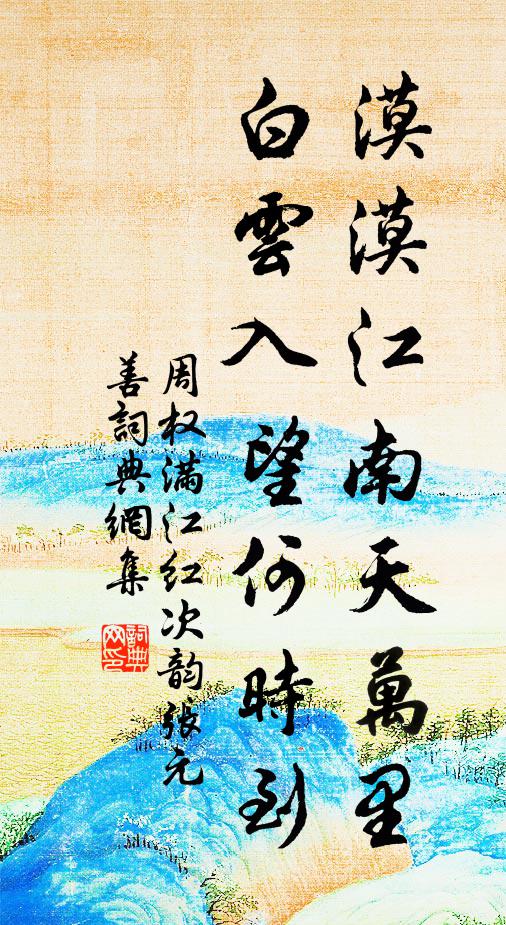 漠漠江南天萬里
白雲入望何時到
周权满江红次韵张元
善詞典網集
詞典网印